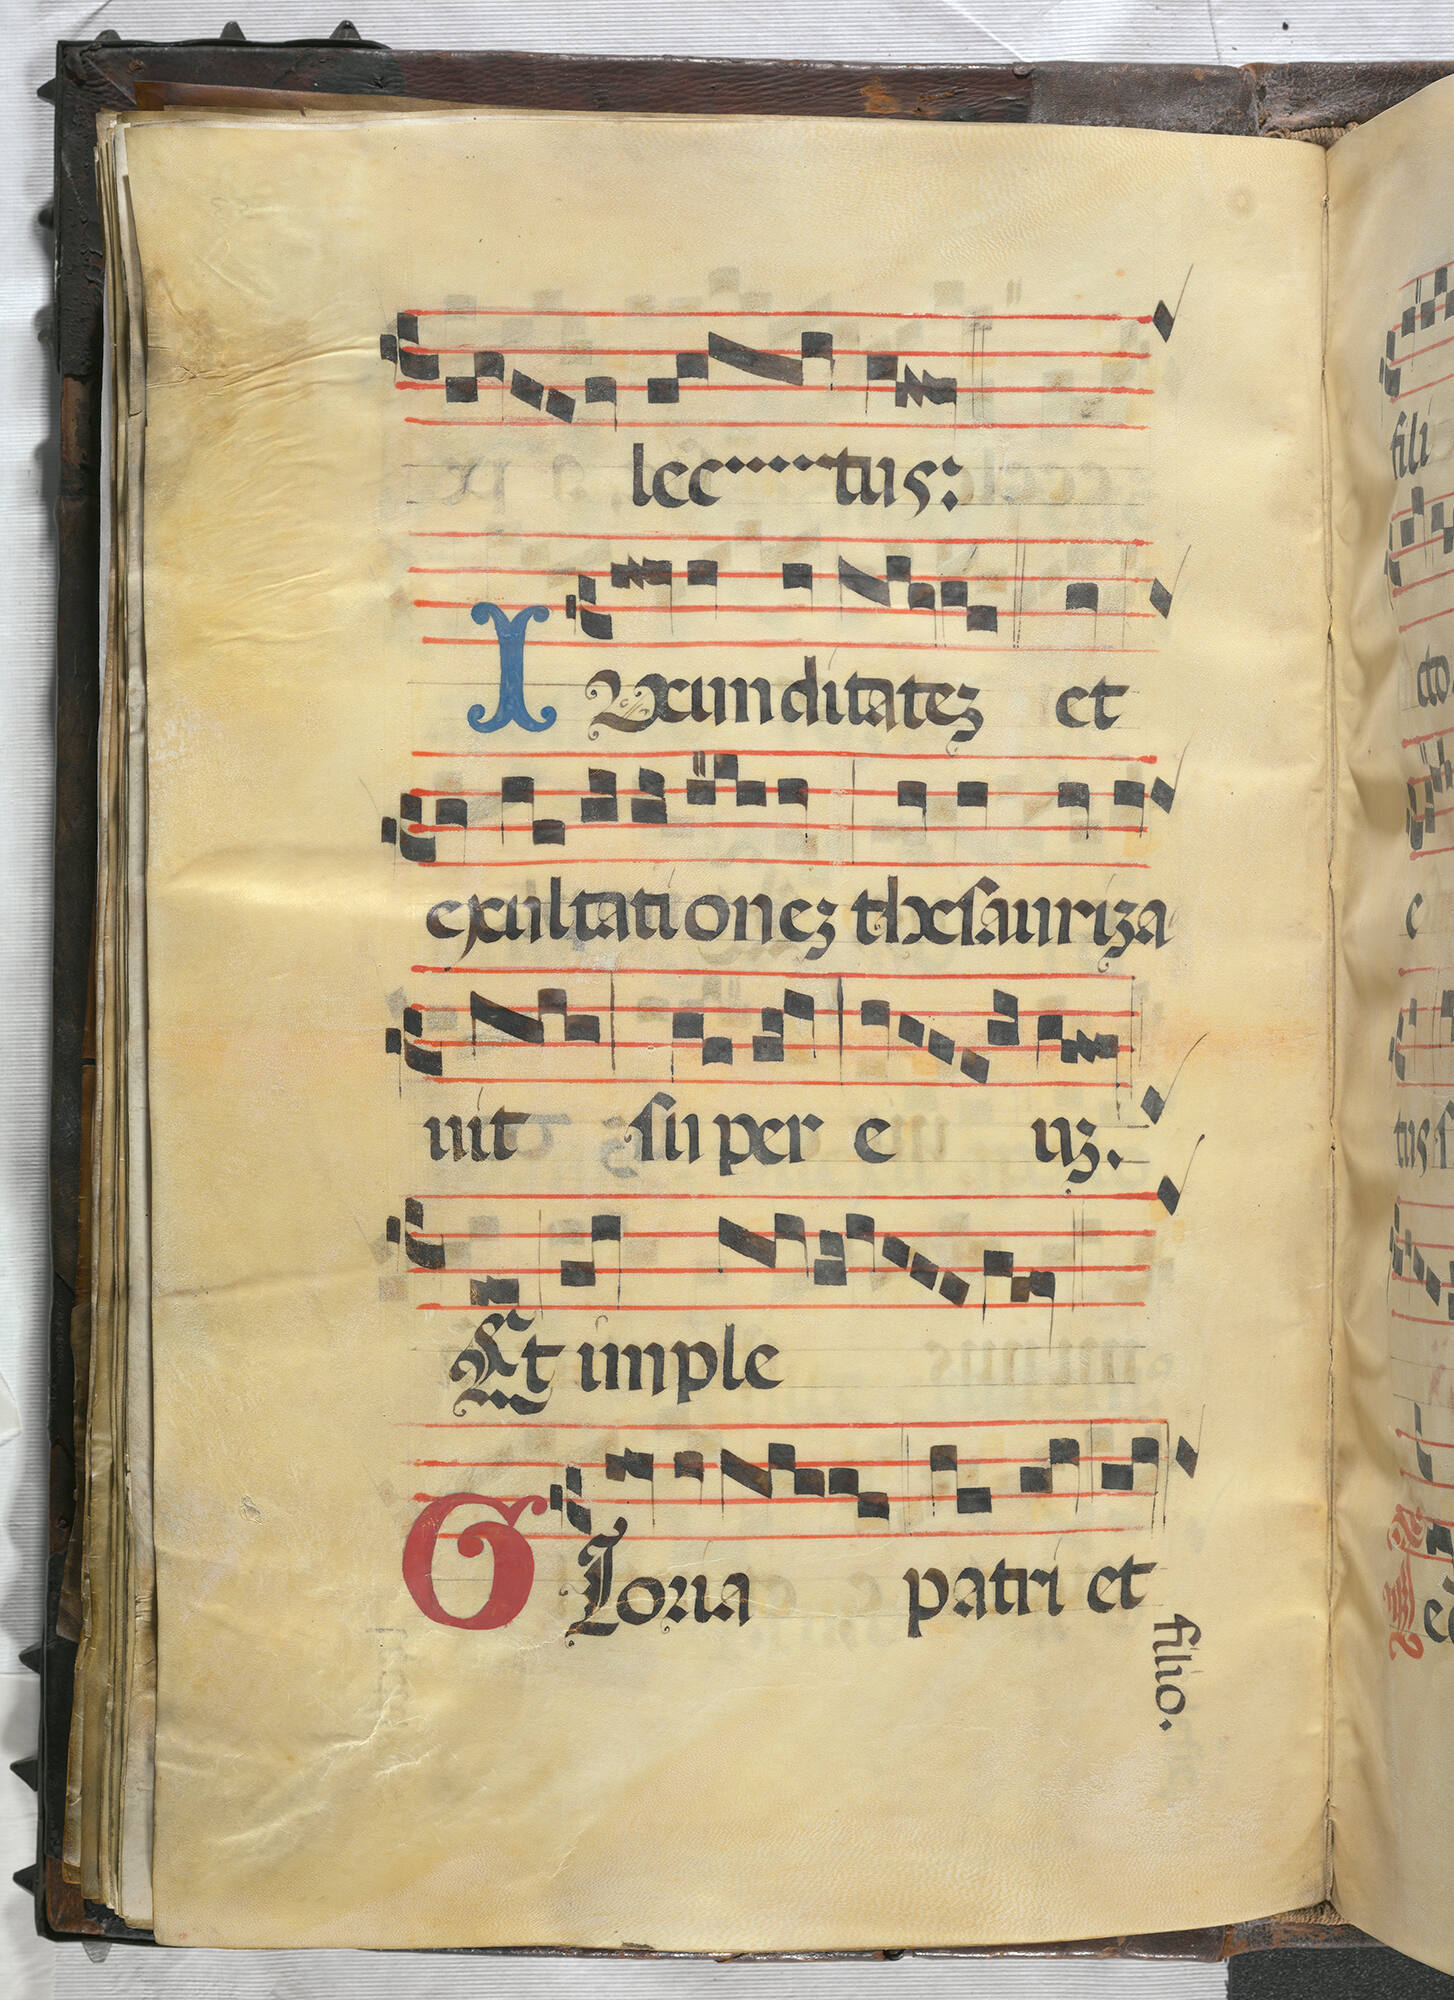 lec tus:
Iucunditatez et
exultationez thesauriza
uit super e uz.
Et imple
Gloria patri et
filio.
fili
cto
e
tus